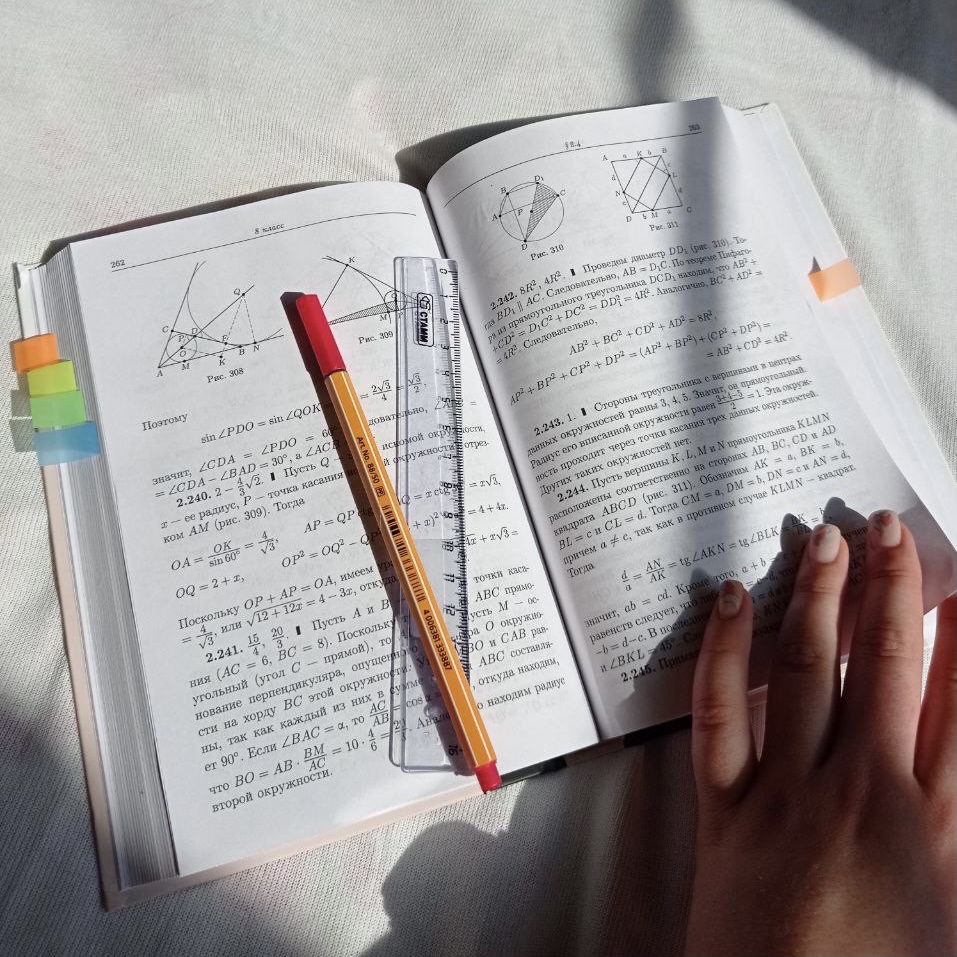 262
8 класс
C
P
D
Q
O
A
M
K
B
N
Рис. 308
K
M
P
Q
Рис. 309
Поэтому
sin ∠PDO = sin ∠QOK = 2√3/4 = √3/2,
значит, ∠CDA = ∠PDO = 60 довательно, ∠A =
= ∠CDA − ∠BAD = 30°, а ∠ACB
2.240. 2 − 4/3 √2. ▮ Пусть Q — искомой окружности,
x — ее радиус, P — точка касания окружности с отрез-
ком AM (рис. 309). Тогда
AP = QP ctg Q = x = x√3,
OA = OK/sin 60° = 4/√3,
OQ = 2 + x, OP² = OQ² − QP + x)² = 4 + 4x.
Поскольку OP + AP = OA, имеем ура 4x + x√3 =
= 4/√3, или √12 + 12x = 4 − 3x, откуда
2.241. 15/4, 20/3. ▮ Пусть A и B точки каса-
ния (AC = 6, BC = 8). Поскольку ABC прямо-
угольный (угол C — прямой), то усть M — ос-
нование перпендикуляра, опущенного ра O окружно-
сти на хорду BC этой окружности. BO и CAB рав-
ны, так как каждый из них в сумме ABC составля-
ет 90°. Если ∠BAC = α, то AC/AB = cos α , откуда находим,
что BO = AB · BM/AC = 10 · 4/6 = Анало о находим радиус
второй окружности.
СТАММ
0 1 2 3 4
Art. No. 88/50
4 006381 333887
§ 8.4
263
B
D₁
A
P
C
D
Рис. 310
A a K b B
d
c
N
L
c
d
D b M a C
Рис. 311
2.242. 8R², 4R². ▮ Проведем диаметр DD₁ (рис. 310). То-
гда BD₁ ∥ AC. Следовательно, AB = D₁C. По теореме Пифаго-
ра из прямоугольного треугольника DCD₁ находим, что AB² +
+ CD² = D₁C² + DC² = DD₁² = 4R². Аналогично, BC² + AD² =
= 4R². Следовательно,
AB² + BC² + CD² + AD² = 8R²,
AP² + BP² + CP² + DP² = (AP² + BP²) + (CP² + DP²) =
= AB² + CD² = 4R².
2.243. 1. ▮ Стороны треугольника с вершинами в центрах
данных окружностей равны 3, 4, 5. Значит, он прямоугольный.
Радиус его вписанной окружности равен (3+4−5)/2 = 1. Эта окруж-
ность проходит через точки касания трех данных окружностей.
Других таких окружностей нет.
2.244. Пусть вершины K, L, M и N прямоугольника KLMN
расположены соответственно на сторонах AB, BC, CD и AD
квадрата ABCD (рис. 311). Обозначим AK = a, BK = b,
BL = c и CL = d. Тогда CM = a, DM = b, DN = c и AN = d,
причем a ≠ c, так как в противном случае KLMN — квадрат.
Тогда
d/a = AN/AK = tg ∠AKN = tg ∠BLK = BK
значит, ab = cd. Кроме того, a + b
равенств следует, что
− b = d − c. В последнем
и ∠BKL = 45°. Сле
2.245. Прям